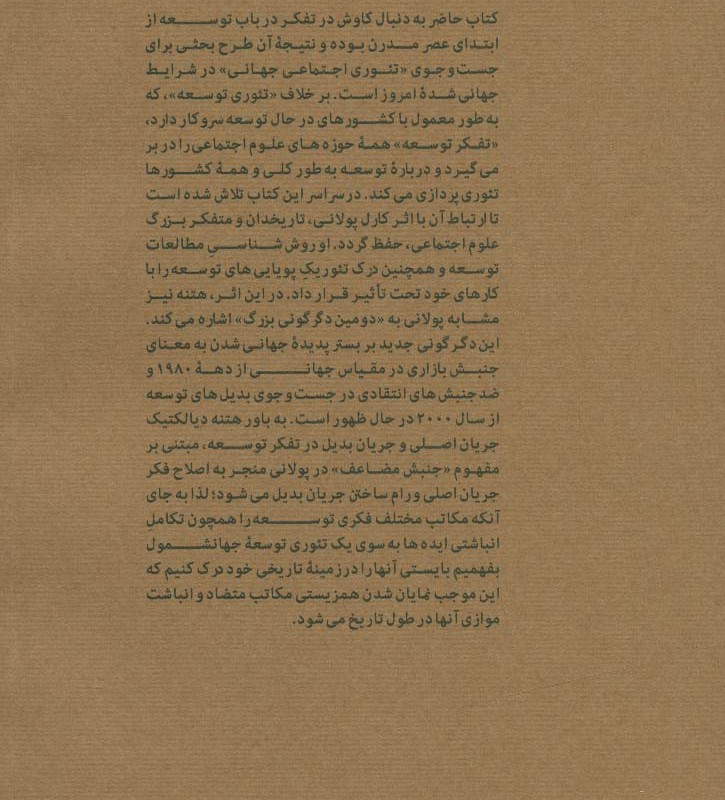 کتاب حاضر به دنبال کاوش در تفکر در باب توسعه از
ابتدای عصر مدرن بوده و نتیجهٔ آن طرح بحثی برای
جست‌وجوی «تئوری اجتماعی جهانی» در شرایط
جهانی شدهٔ امروز است. بر خلاف «تئوری توسعه»، که
به طور معمول با کشورهای در حال توسعه سروکار دارد،
«تفکر توسعه» همهٔ حوزه های علوم اجتماعی را در بر
می گیرد و دربارهٔ توسعه به طور کلی و همهٔ کشورها
تئوری پردازی می کند. در سراسر این کتاب تلاش شده است
تا ارتباط آن با اثر کارل پولانی، تاریخدان و متفکر بزرگ
علوم اجتماعی، حفظ گردد. او روش شناسیِ مطالعات
توسعه و همچنین درک تئوریکِ پویایی های توسعه را با
کارهای خود تحت تأثیر قرار داد. در این اثر، هتنه نیز
مشابه پولانی به «دومین دگرگونی بزرگ» اشاره می کند.
این دگرگونی جدید بر بستر پدیدهٔ جهانی شدن به معنای
جنبش بازاری در مقیاس جهانی از دههٔ ۱۹۸۰ و
ضد جنبش های انتقادی در جست‌وجوی بدیل های توسعه
از سال ۲۰۰۰ در حال ظهور است. به باور هتنه دیالکتیک
جریان اصلی و جریان بدیل در تفکر توسعه، مبتنی بر
مفهوم «جنبش مضاعف» در پولانی منجر به اصلاح فکر
جریان اصلی و رام ساختن جریان بدیل می شود؛ لذا به جای
آنکه مکاتب مختلف فکری توسعه را همچون تکاملِ
انباشتی ایده ها به سوی یک تئوری توسعهٔ جهانشمول
بفهمیم بایستی آنها را در زمینهٔ تاریخی خود درک کنیم که
این موجب نمایان شدن همزیستی مکاتب متضاد و انباشت
موازی آنها در طول تاریخ می شود.